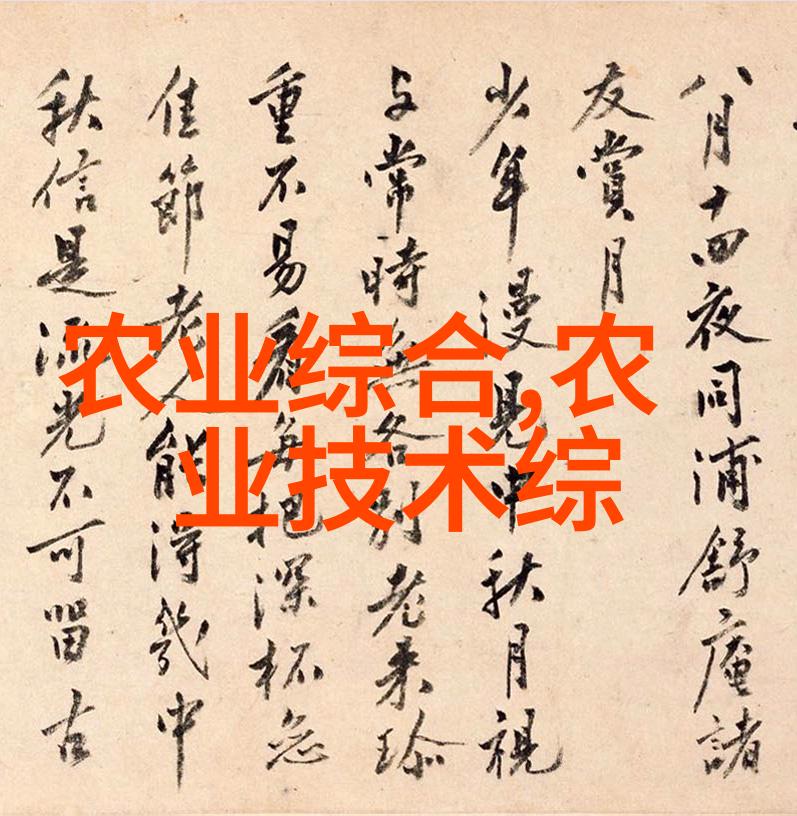 八月十四夜同浦舒庵諸
友賞月
少年漫見中秋月視
与常時無各別老来珎
重不易看每把深杯
佳節老人能得幾中
秋信是流光不可留古
农业综合,农
业技术综